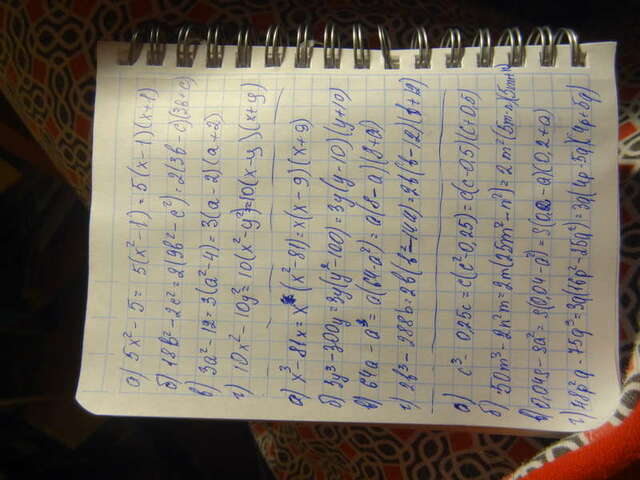 а) 5x² - 5 = 5(x² - 1) = 5(x - 1)(x + 1)
б) 18b² - 2c² = 2(9b² - c²) = 2(3b - c)(3b + c)
в) 3a² - 12 = 3(a² - 4) = 3(a - 2)(a + 2)
г) 10x² - 10y² = 10(x² - y²) = 10(x - y)(x + y)
а) x³ - 81x = x(x² - 81) = x(x - 9)(x + 9)
б) 3y³ - 300y = 3y(y² - 100) = 3y(y - 10)(y + 10)
в) 64a - a³ = a(64 - a²) = a(8 - a)(8 + a)
г) 2b³ - 288b = 2b(b² - 144) = 2b(b - 12)(b + 12)
а) c³ - 0,25c = c(c² - 0,25) = c(c - 0,5)(c + 0,5)
б) 50m³ - 2n²m = 2m(25m² - n²) = 2m(5m - n)(5m + n)
в) 0,04s - sa² = s(0,04 - a²) = s(0,2 - a)(0,2 + a)
г) 48p²q - 75q³ = 3q(16p² - 25q²) = 3q(4p - 5q)(4p + 5q)